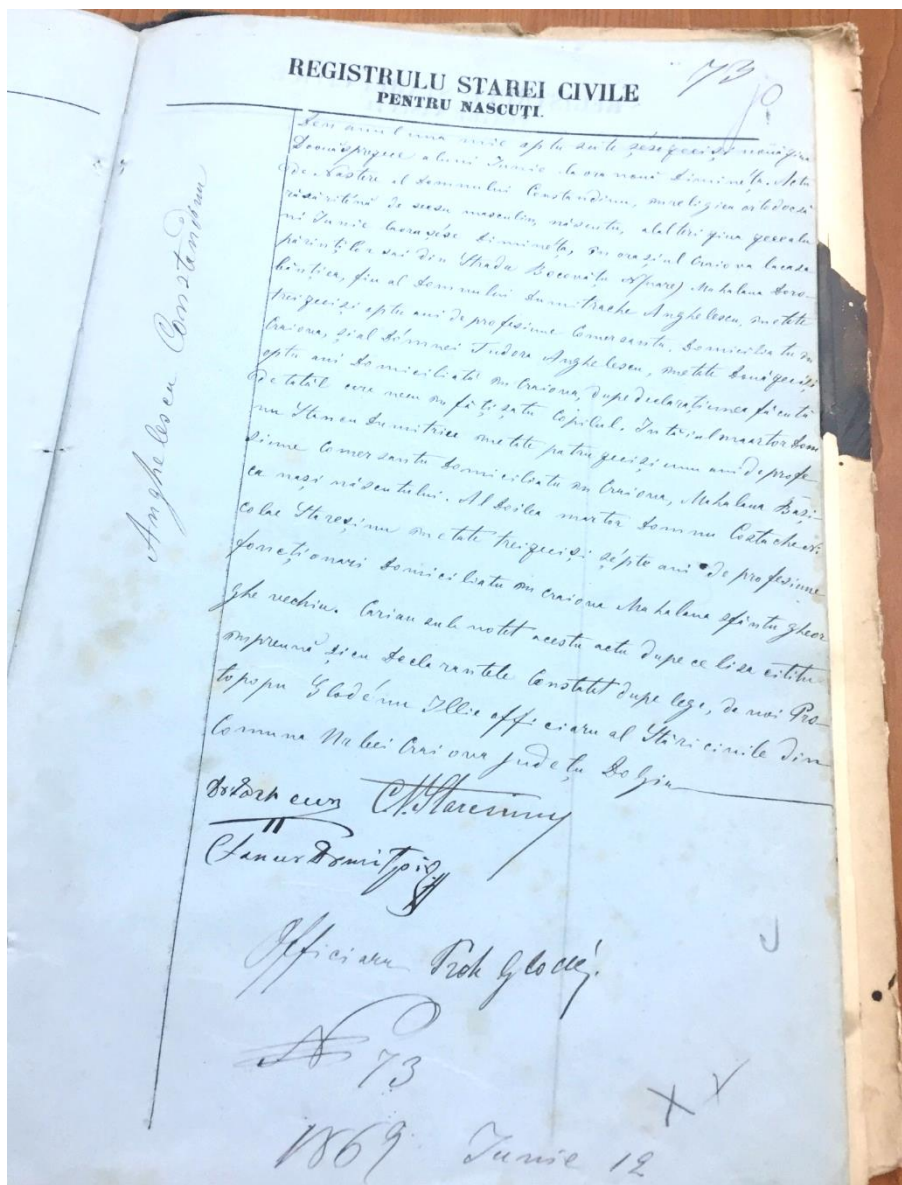 73
REGISTRULU STAREI CIVILE
PENTRU NASCUȚI.
Anghelescu Constandinu
Din anul una mie optu sute șése ḑeci și nouă ḑioa
Douăsprezece a luni Junie la ora nouă diminéța. Actu
de Nastere al Domnului Constandinu, de religiea ortodocsă
răsăriténă de secsu masculin, născutu, alaltieri ḑioa ḑecea lu
nĭ Junie la ora șése diminéța, în orașiul Craiova la casa
părințiloru sai din Strada Mahalaua Doro-
bănțiea, fiu al Domnului Dumitrache Anghelescu, în etate
trei ḑeci și optu ani de profesiune Comersantu, Domiciliatu în
Craiova, și al Dómnei Tudora Anghelescu, în etate două ḑeci și
optu ani domiciliată în Craiova, dupe declarațiunea făcută
de tatăl care neau înfăți satu Copilul. Întâiul maartor Dom
nu Stancu Dumitriu în etate patru ḑeci si unu ani de profe
siune Comersantu domiciliatu în Craiova, Mahalaua
ca nași născutului. Al doilea martor Domnu Costache Ni
colae Staresinu în etate trei ḑeci și șépte ani de profesiune
foncționari domiciliatu în Craiova Mahalaua sfântu gheor
ghe vechiu. Cariau sub notet acestu actu dupe ce lisa cititu
împreună și cu declarantele Constatet dupe lege, de noi Pro-
topopu Glodénu Illie officiaru al Stări civile din
Comuna Urbei Craiova județu Doljiu
C. N. Staresinu
Stancu Dumitriu
Officiaru Prot. Glodén.
N 73
1869 Junie 12